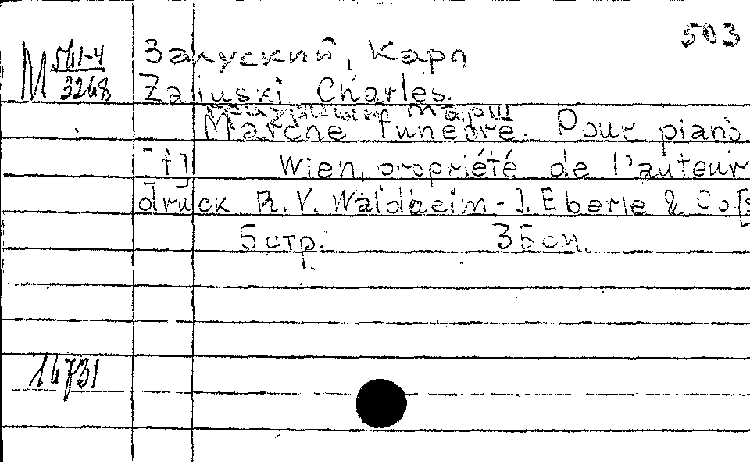 503
М 561-4/3268
Залуский, Карл
Zaluski Charles.
марш
Marche funèbre. Pour piano
Wien, propriété de l'auteur
druck R.V. Waldheim - J. Eberle & Co
5 стр. 35 см.
16731